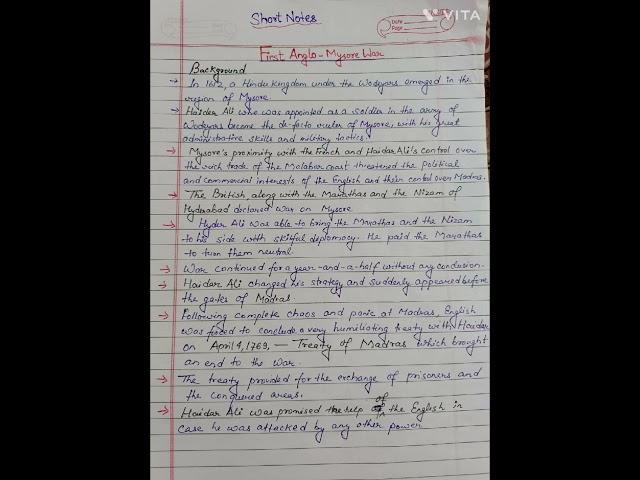 Short Notes
Date
Page
VITA
First Anglo-Mysore War
Background
→ In 1612, a Hindu Kingdom under the Wodeyars emerged in the
region of Mysore.
→ Haidar Ali who was appointed as a soldier in the army of
Wodeyars become the de-facto ruler of Mysore, with his great
administrative skills and military tactics.
→ Mysore's proximity with the French and Haidar Ali's control over
the rich trade of the Malabar coast threatened the political
and commercial interests of the English and their control over Madras.
→ The British, along with the Marathas and the Nizam of
Hyderabad declared war on Mysore
→ Hyder Ali was able to bring the Marathas and the Nizam
to his side with skilful diplomacy. He paid the Marathas
to turn them neutral.
→ War continued for a year-and-a-half without any conclusion.
→ Haidar Ali changed his strategy and suddenly appeared before
the gates of Madras
→ Following complete chaos and panic at Madras, English
was forced to conclude a very humiliating treaty with Haidar
on April 4, 1769, — Treaty of Madras which brought
an end to the war.
→ The treaty provided for the exchange of prisoners and
the conquered areas.
→ Haidar Ali was promised the help of the English in
case he was attacked by any other power